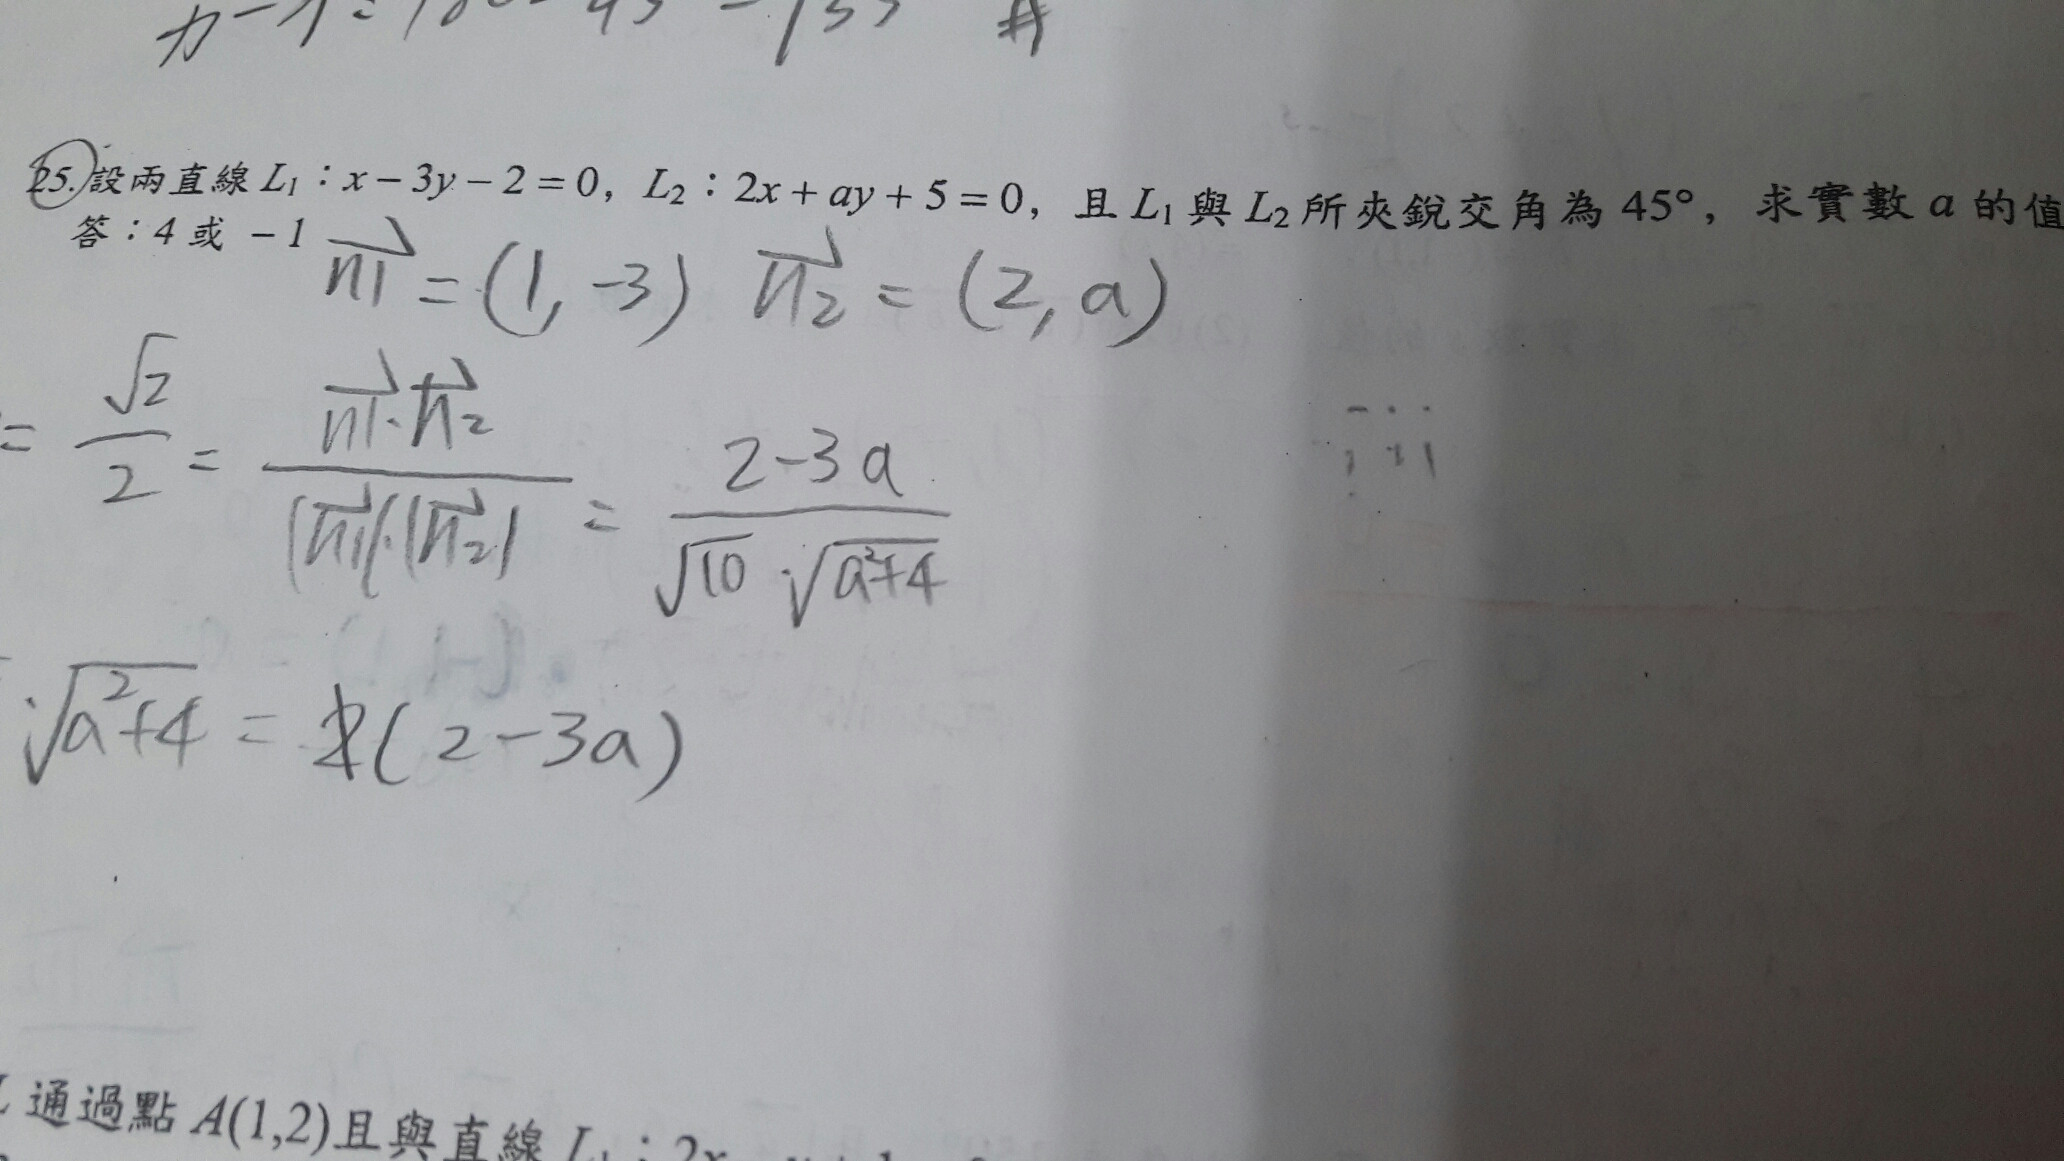 25. 設兩直線 L₁：x − 3y − 2 = 0，L₂：2x + ay + 5 = 0，且 L₁ 與 L₂ 所夾銳交角為 45°，求實數 a 的值
答：4 或 −1
n1 = (1, -3) n2 = (2, a)
= √2/2 = n1·n2 / |n1|·|n2| = 2-3a / √10 · √a²+4
·√a²+4 = 2(2-3a)
通過點 A(1,2)且與直線